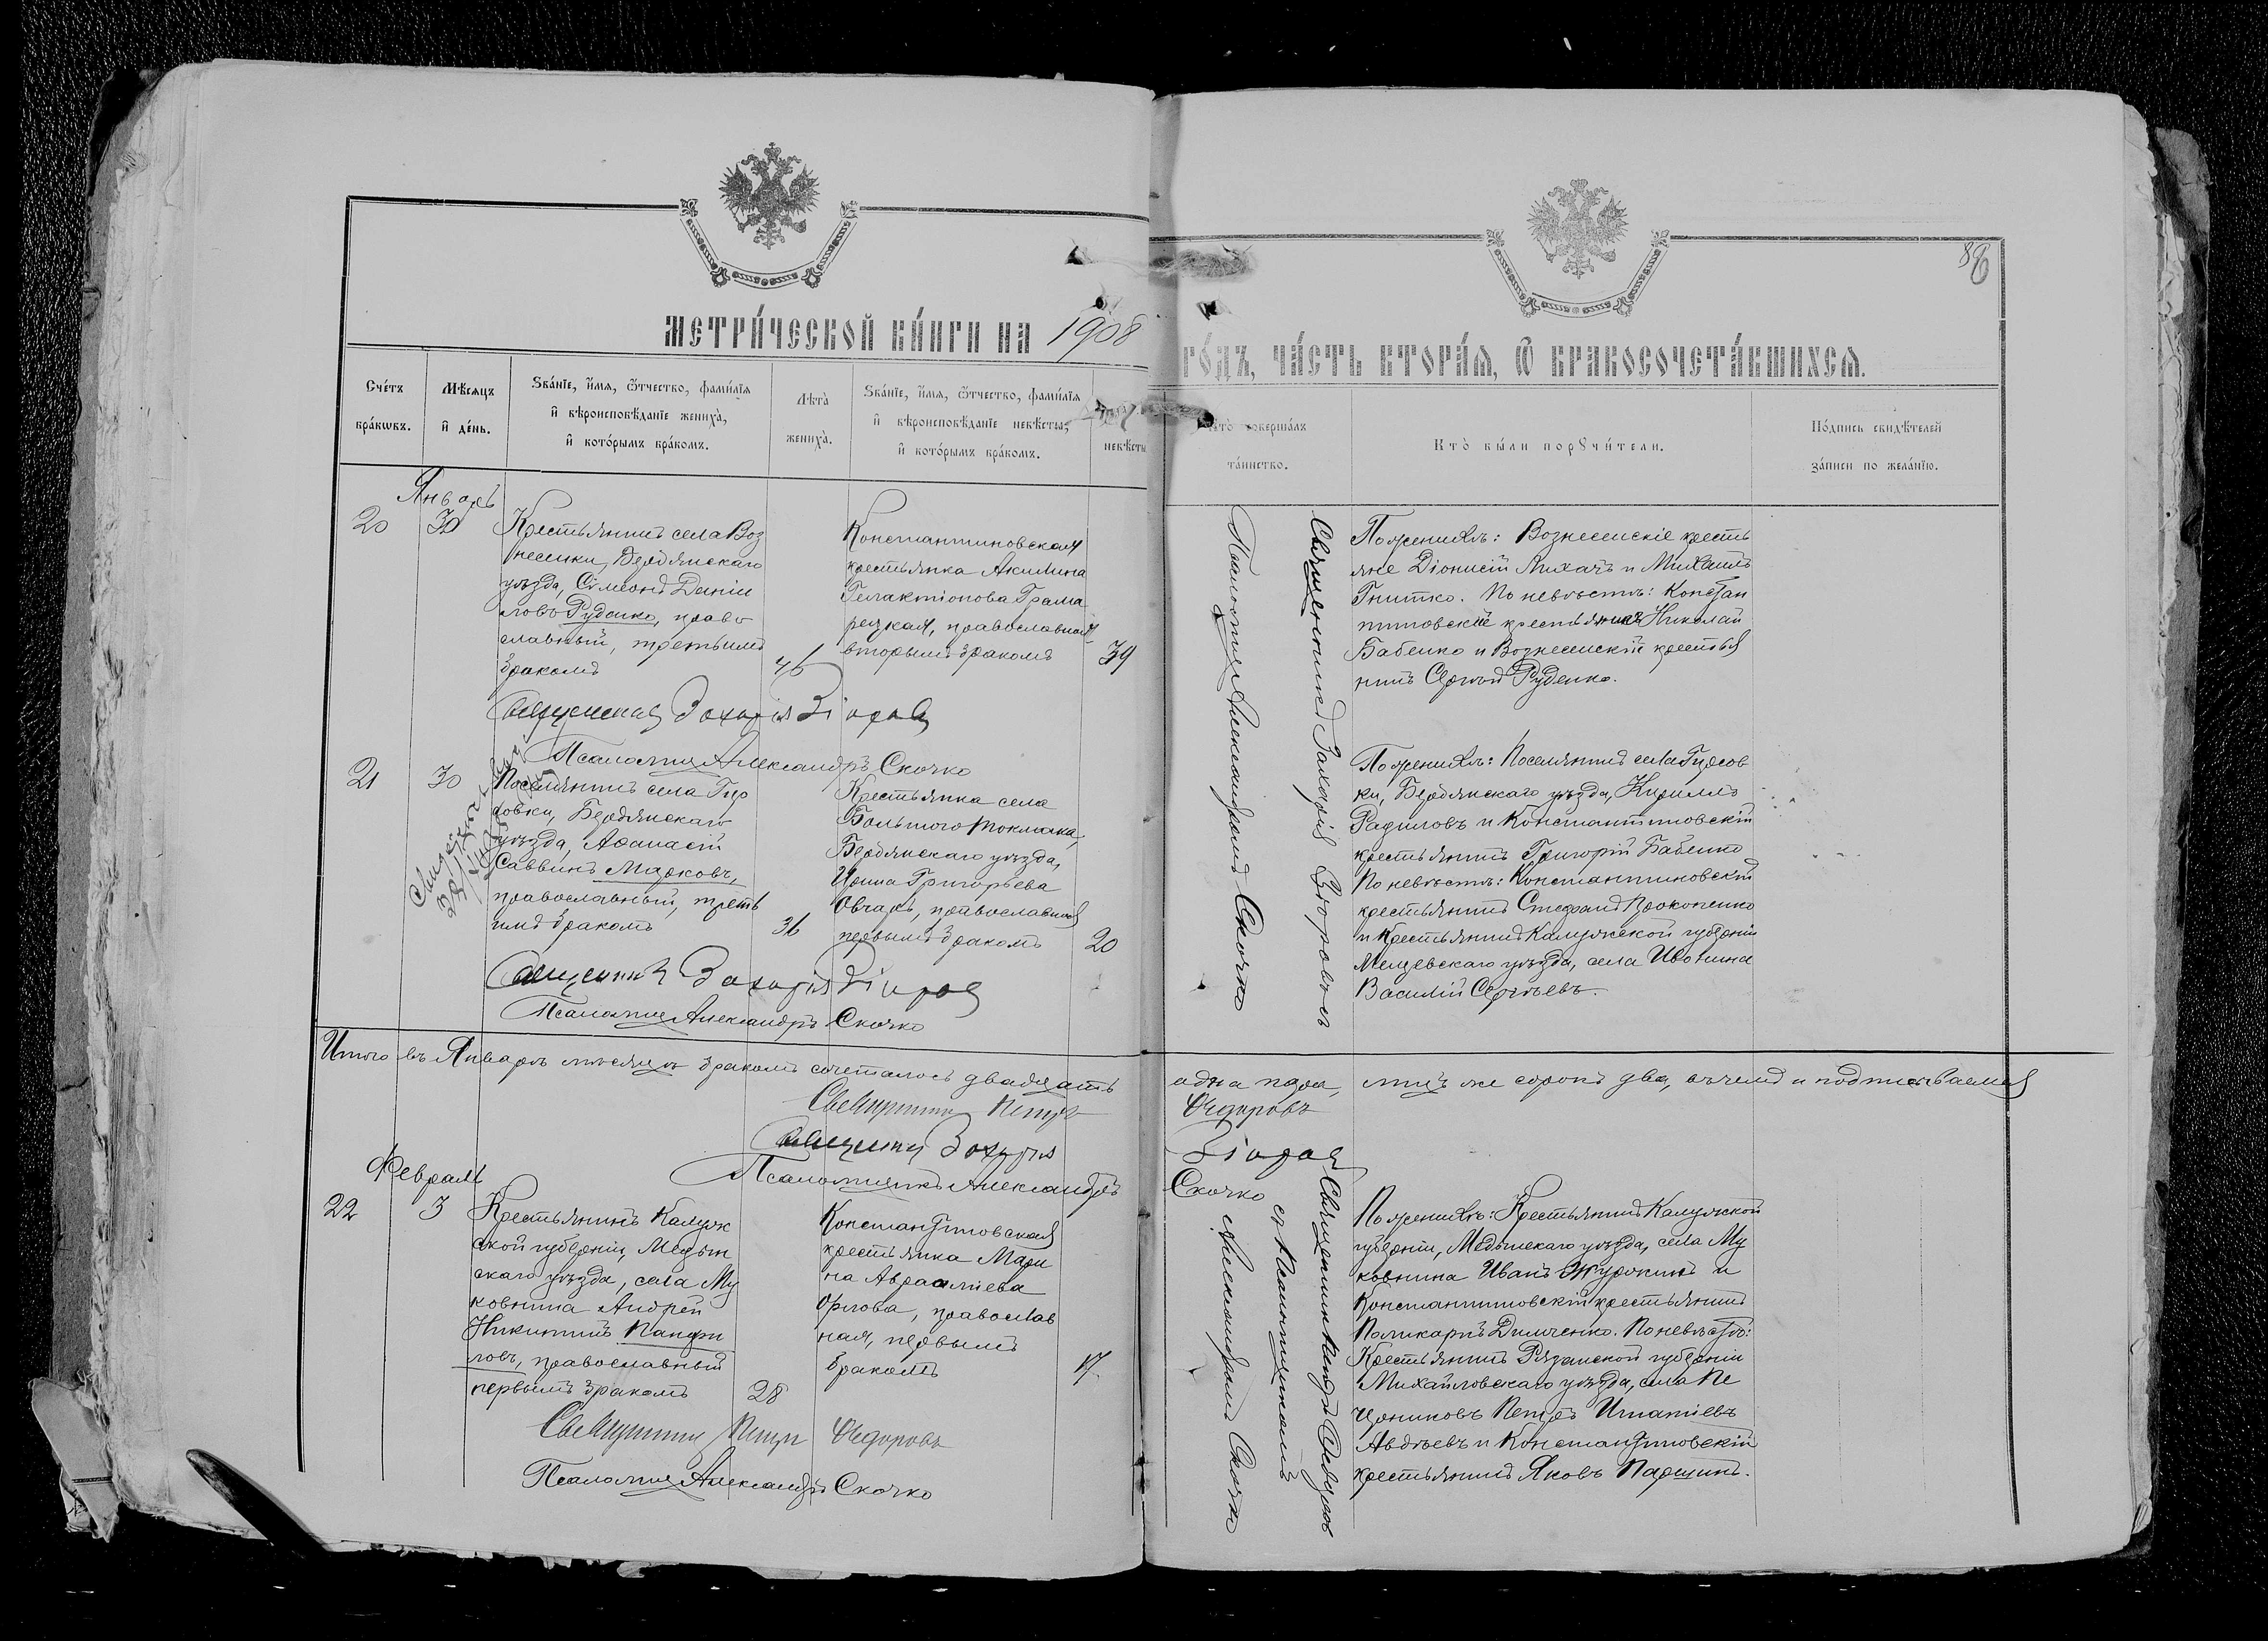 МЕТРИ́ЧЕСКОЙ КНИ́ГИ НА 1908
ГО́ДЪ, ЧА́СТЬ ВТОРА́Я, Ѿ БРАКОСОЧЕТА́ВШИХСЯ.
88
Сче́тъ
бра́кѡвъ.
Мѣ́сяцъ
и҆ де́нь.
Ѕва́нїе, и҆́мя, ѻ҆́тчество, фами́лїя
и҆ вѣроисповѣ́данїе жениха̀,
и҆ кото́рымъ бра́комъ.
Лѣ́та
жениха̀.
Ѕва́нїе, и҆́мя, ѻ҆́тчество, фами́лїя
и҆ вѣроисповѣ́данїе невѣ́сты,
и҆ кото́рымъ бра́комъ.
невѣ́сты
Кто̀ соверша́лъ
та́инство.
Кто̀ бы́ли порꙋчи́тели.
По́дпись свидѣ́телей
за́писи по жела́нїю.
Январь
20
30
Крестьянинъ села Воз
несенки, Бердянскаго
уѣзда, Сѵмеонъ Даніи
ловъ Руденко, право
славный, третьимъ
бракомъ
45
Константиновская
крестьянка Акилина
Галактіонова Грама
рецкая, православная,
вторымъ бракомъ
39
Священникъ Захарія
Псаломщикъ Александръ Скочко
Священникъ Захарія
съ Псаломщикомъ Александромъ Скочко
По женихѣ: Вознесенскіе кресть
яне Діонисій Лихачъ и Михаилъ
Гнитко. По невѣстѣ: Констан
тиновскій крестьянинъ Николай
Бабенко и Вознесенскій крестья
нинъ Сергѣй Руденко.
21
30
Поселянинъ села Гир
совки, Бердянскаго
уѣзда, Аѳанасій
Саввинъ Марковъ,
православный, треть
имъ бракомъ
36
Крестьянка села
Большого Токмака,
Бердянскаго уѣзда,
Ирина Григорьева
Овчаръ, православная
первымъ бракомъ
20
Священникъ Захарія
Псаломщикъ Александръ Скочко
По женихѣ: Поселянинъ села Гирсов
ки, Бердянскаго уѣзда, Кириллъ
Радиловъ и Константиновскій
крестьянинъ Григорій Бабенко
По невѣстѣ: Константиновскій
крестьянинъ Стефанъ Прокопенко
и Крестьянинъ Калужской губерніи
Мещевскаго уѣзда, села Ивотина
Василій Сергѣевъ.
Итого въ Январѣ мѣсяцѣ бракомъ сочеталось двадцать
одна пара, лицъ же сорокъ два, въ чемъ и подписываемся
Священникъ Петръ Ѳедоровъ
Священникъ Захарія
Псаломщикъ Александръ Скочко
Февраль
22
3
Крестьянинъ Калуж
ской губерніи, Медын
скаго уѣзда, села Му
ковнина Андрей
Никитинъ Панфи
ловъ, православный
первымъ бракомъ
28
Константиновская
крестьянка Мари
на Авраамиева
Орлова, православ
ная, первымъ
бракомъ
17.
Священникъ Петръ Ѳедоровъ
Псаломщикъ Александръ Скочко
Священникъ Петръ Ѳедоровъ
съ Псаломщикомъ
Александромъ Скочко
По женихѣ: Крестьянинъ Калужской
губерніи, Медынскаго уѣзда, села Му
ковнина Иванъ Журокинъ и
Константиновскій крестьянинъ
Поликарпъ Димченко. По невѣстѣ:
Крестьянинъ Рязанской губерніи
Михайловскаго уѣзда, села Пе
черниковъ Петръ Игнатіевъ
Авдѣевъ и Константиновскій
крестьянинъ Яковъ Паршинъ.